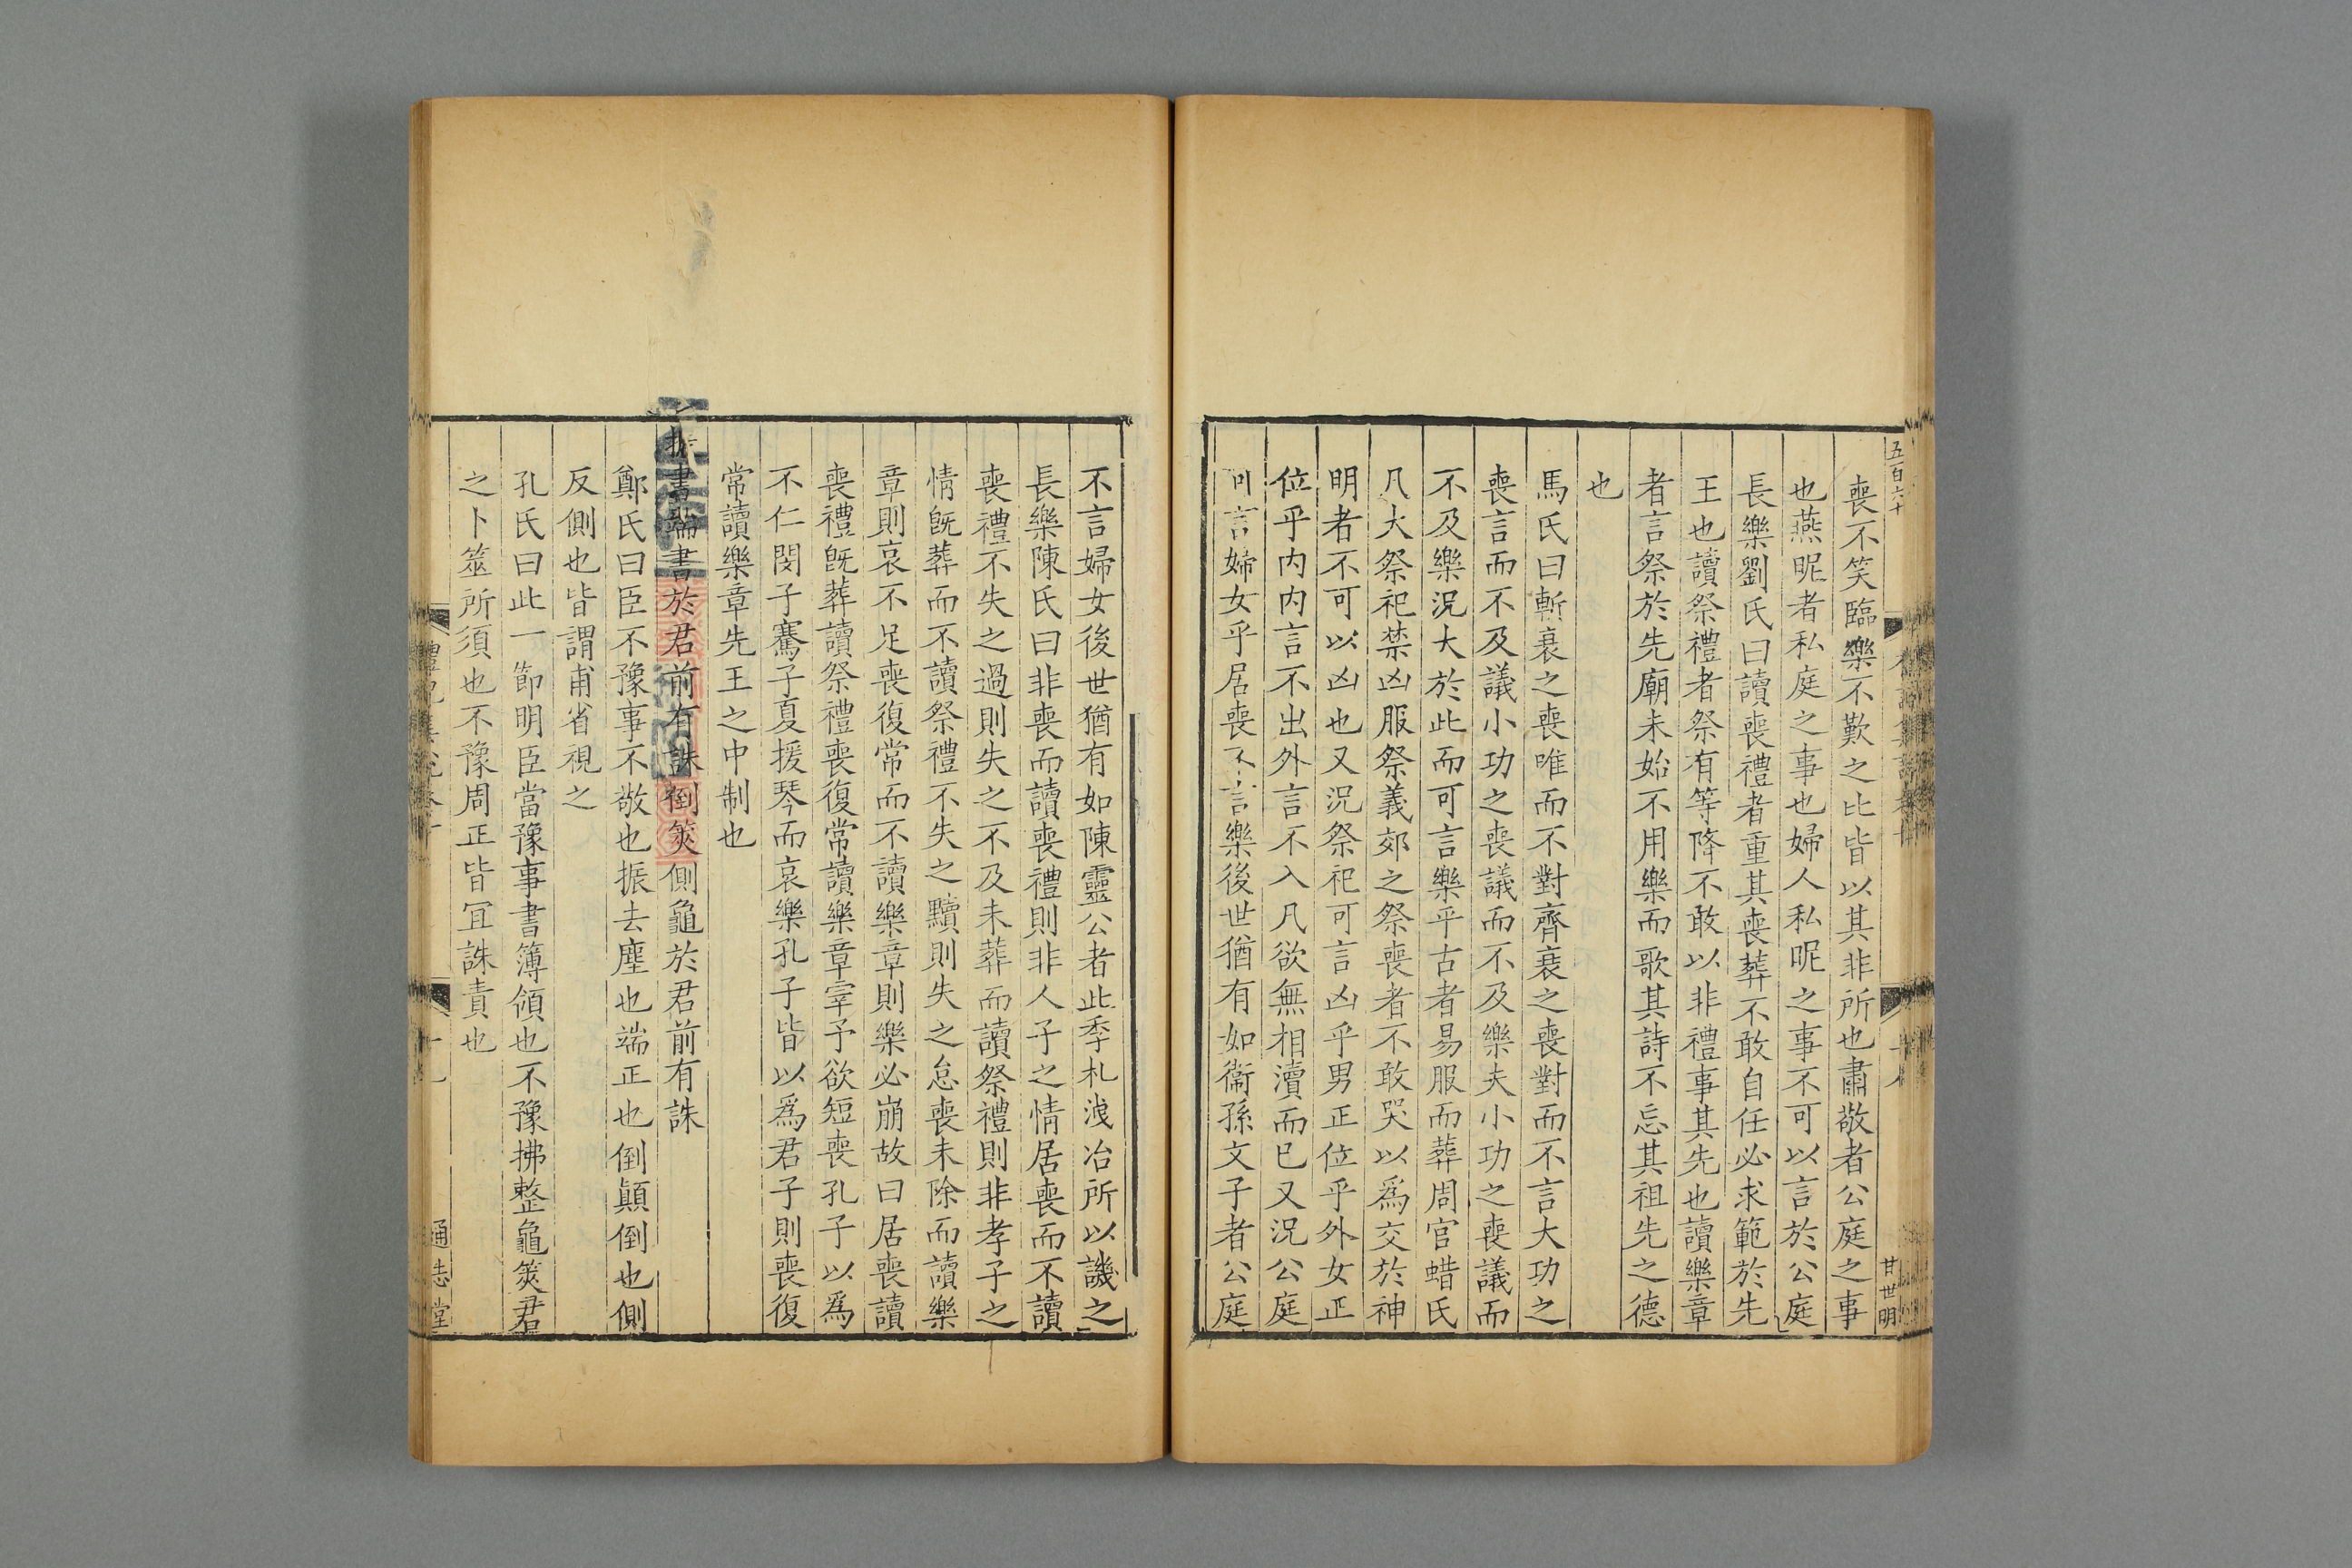 五百六十
甘世明
喪不笑臨樂不歎之比皆以其非所也肅敬者公庭之事
也燕昵者私庭之事也婦人私昵之事不可以言於公庭
長樂劉氏曰讀喪禮者重其喪葬不敢自任必求範於先
王也讀祭禮者祭有等降不敢以非禮事其先也讀樂章
者言祭於先廟未始不用樂而歌其詩不忘其祖先之德
也
馬氏曰斬衰之喪唯而不對齊衰之喪對而不言大功之
喪言而不及議小功之喪議而不及樂夫小功之喪議而
不及樂況大於此而可言樂乎古者易服而葬周官蜡氏
凡大祭祀禁凶服祭義郊之祭喪者不敢哭以爲交於神
明者不可以凶也又況祭祀可言凶乎男正位乎外女正
位乎内内言不出外言不入凡欲無相瀆而已又況公庭
言婦女乎居喪不言樂後世猶有如衞孫文子者公庭
不言婦女後世猶有如陳靈公者此季札洩冶所以譏之
長樂陳氏曰非喪而讀喪禮則非人子之情居喪而不讀
喪禮不失之過則失之不及未葬而讀祭禮則非孝子之
情既葬而不讀祭禮不失之黷則失之怠喪未除而讀樂
章則哀不足喪復常而不讀樂章則樂必崩故曰居喪讀
喪禮既葬讀祭禮喪復常讀樂章宰予欲短喪孔子以爲
不仁閔子騫子夏援琴而哀樂孔子皆以爲君子則喪復
常讀樂章先王之中制也
振書端書於君前有誅倒筴側龜於君前有誅
鄭氏曰臣不豫事不敬也振去塵也端正也倒顛倒也側
反側也皆謂甫省視之
孔氏曰此一節明臣當豫事書簿領也不豫拂整龜筴君
之卜筮所須也不豫周正皆冝誅責也
通志堂